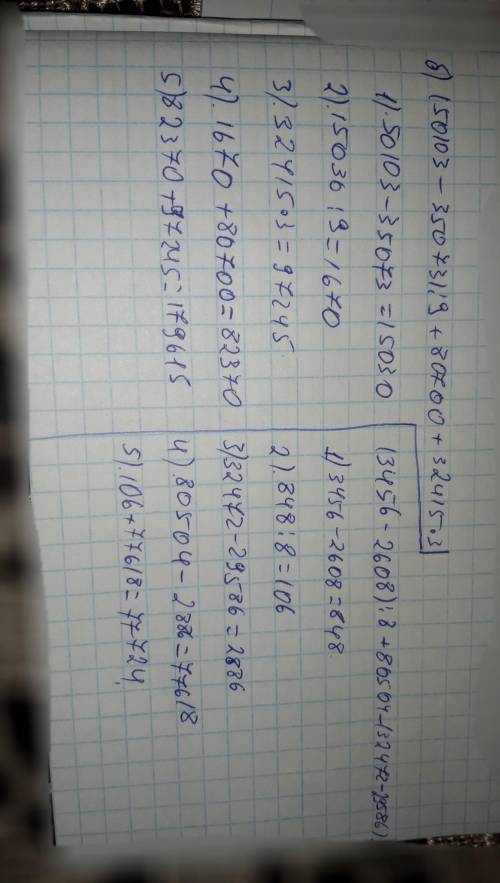 б) (50103 - 35073):9 + 80700 + 32415·3
1). 50103 - 35073 = 15030
2). 15036 : 9 = 1670
3). 32415·3 = 97245
4). 1670 + 80700 = 82370
5) 82370 + 97245 = 179615
(3456 - 2608):8 + 80504 - (32472 - 29586)
1) 3456 - 2608 = 848
2) 848:8 = 106
3) 32472 - 29586 = 2886
4) 80504 - 2886 = 77618
5). 106 + 77618 = 77724